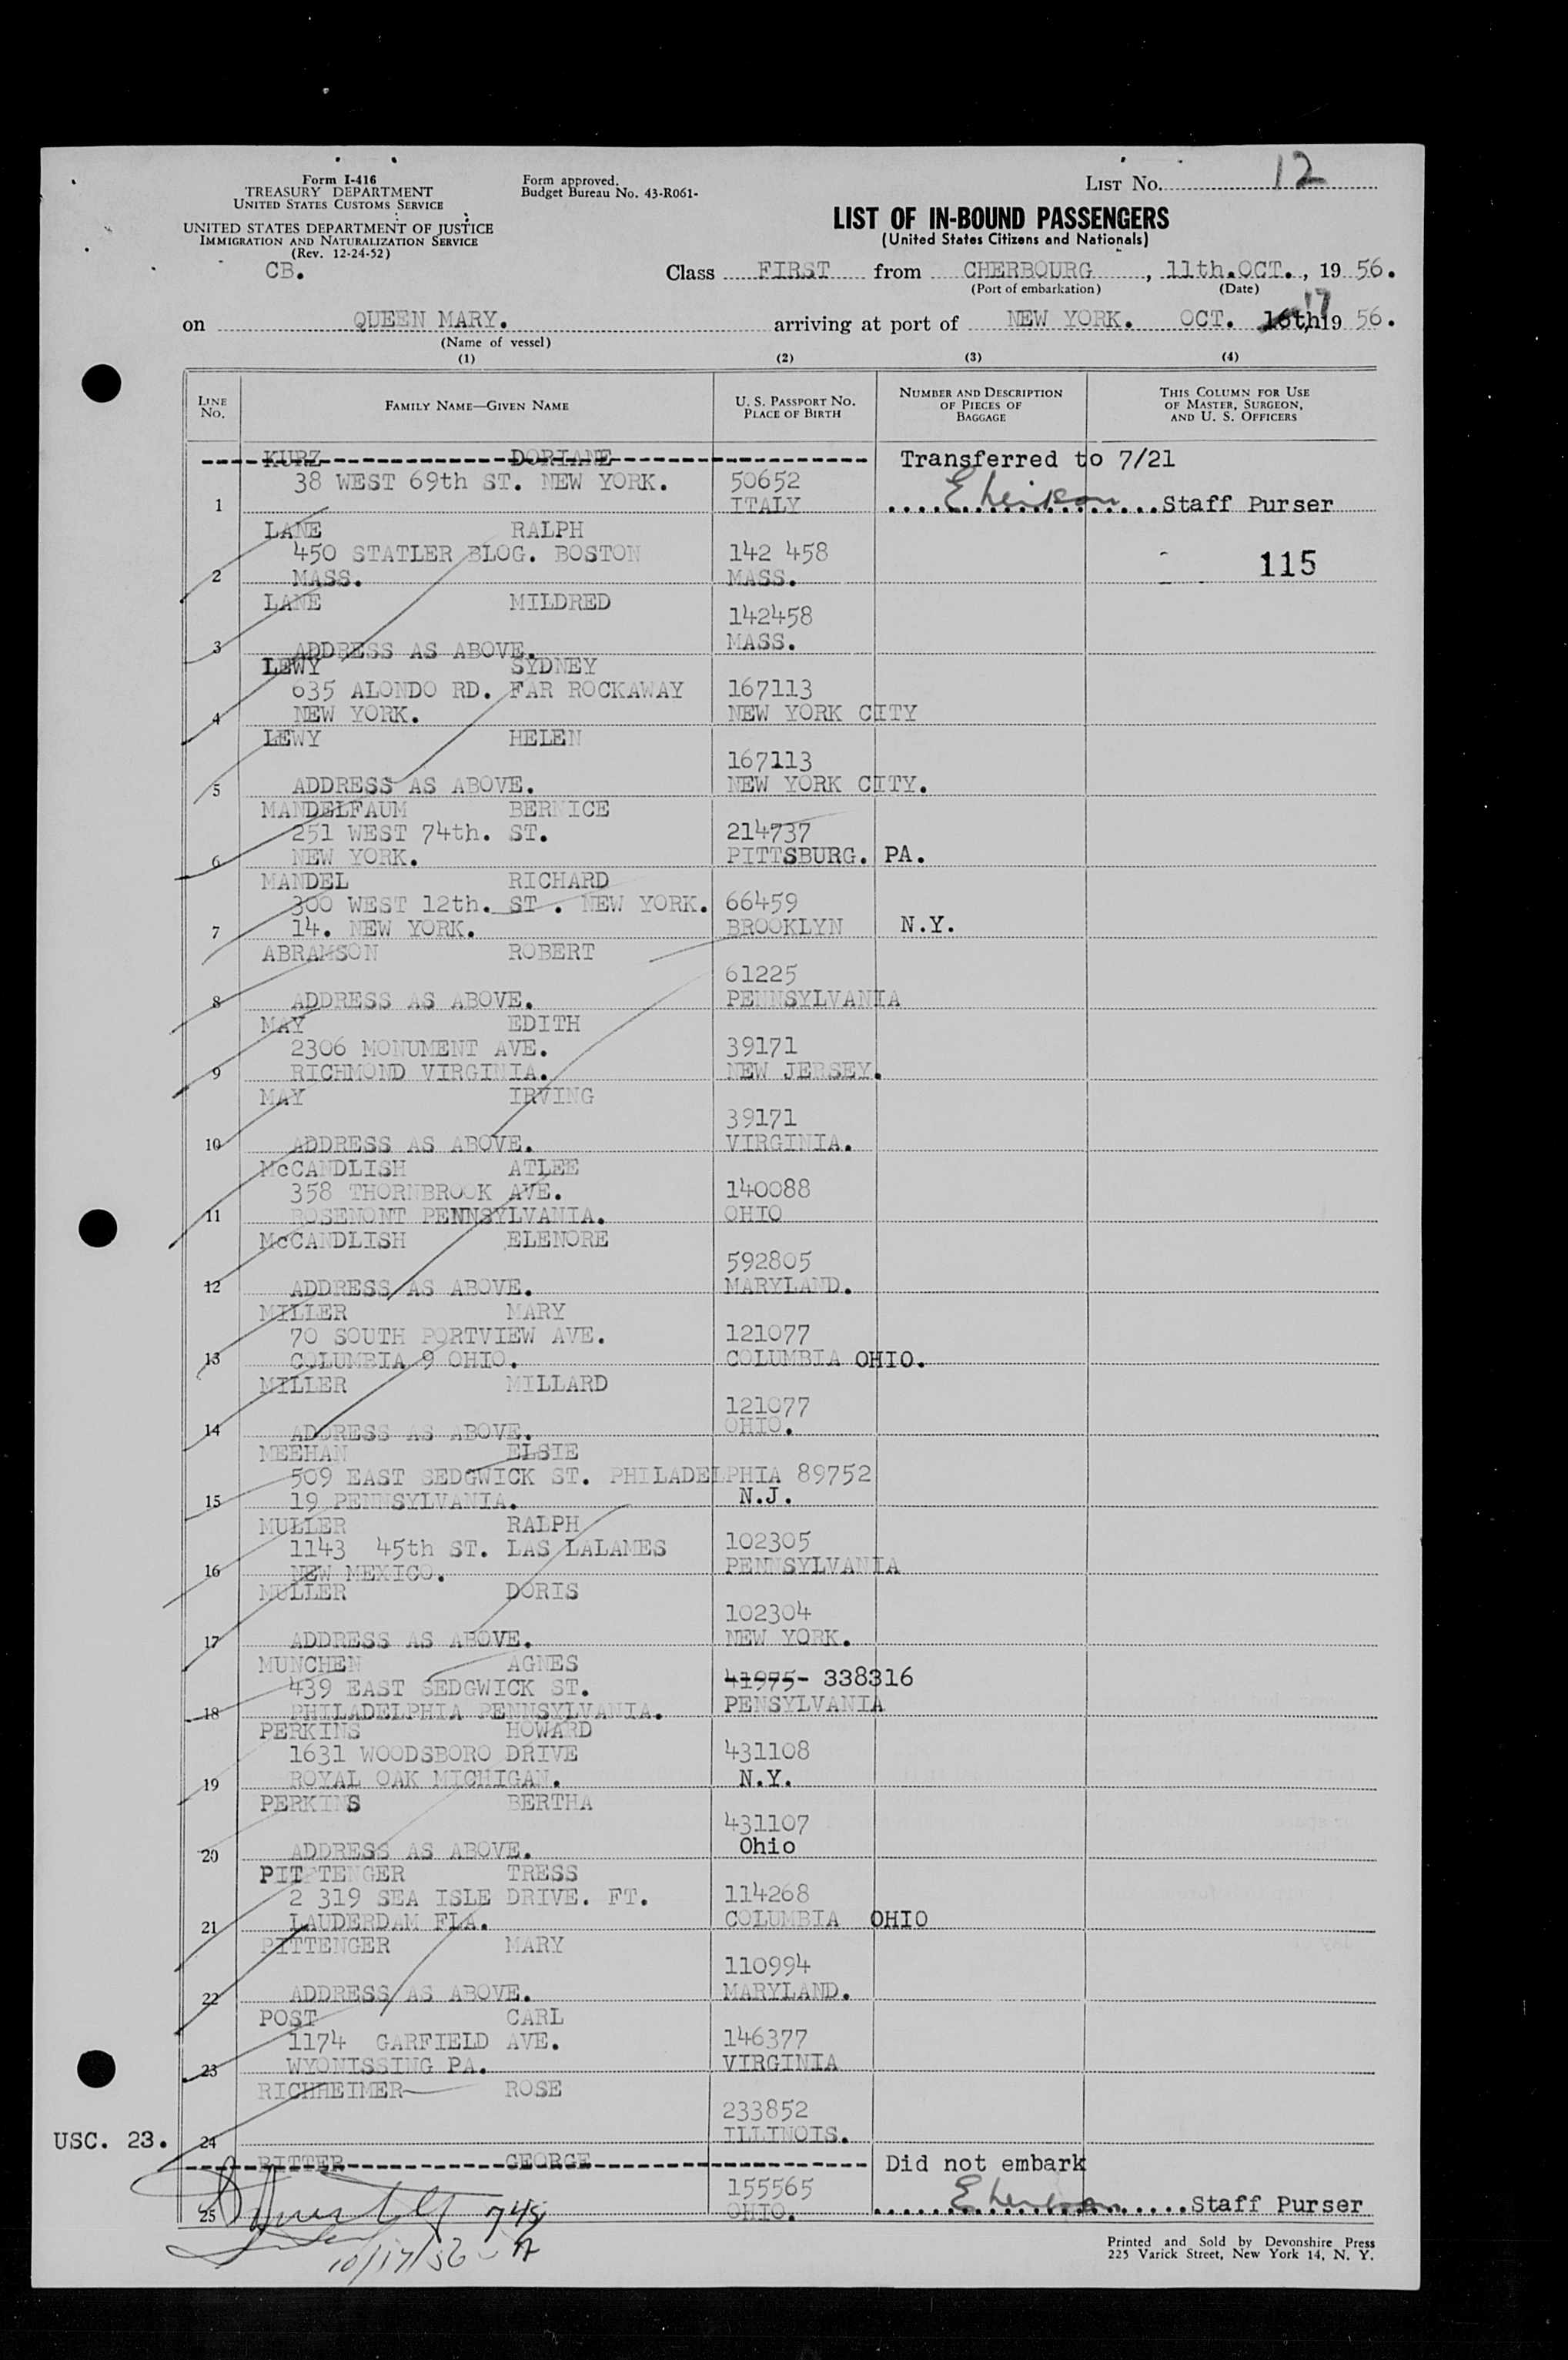 Form I-416
TREASURY DEPARTMENT
UNITED STATES CUSTOMS SERVICE
UNITED STATES DEPARTMENT OF JUSTICE
IMMIGRATION AND NATURALIZATION SERVICE
(Rev. 12-24-52)
CB.
Form approved.
Budget Bureau No. 43-R061-
LIST NO. 12
LIST OF IN-BOUND PASSENGERS
(United States Citizens and Nationals)
Class FIRST from CHERBOURG, 11th.OCT., 19 56.
(Port of embarkation) (Date)
on QUEEN MARY. arriving at port of NEW YORK. OCT. 16th 17 19 56.
(Name of vessel)
(1) (2) (3) (4)
LINE NO. FAMILY NAME—GIVEN NAME U. S. PASSPORT NO. PLACE OF BIRTH NUMBER AND DESCRIPTION OF PIECES OF BAGGAGE THIS COLUMN FOR USE OF MASTER, SURGEON, AND U. S. OFFICERS
KURZ DORIANE Transferred to 7/21
38 WEST 69th ST. NEW YORK. 50652
1 ITALY Staff Purser
LANE RALPH
450 STATLER BLOG. BOSTON 142 458 115
2 MASS. MASS.
LANE MILDRED
142458
3 ADDRESS AS ABOVE. MASS.
LEWY SYDNEY
635 ALONDO RD. FAR ROCKAWAY 167113
4 NEW YORK. NEW YORK CITY
LEWY HELEN
167113
5 ADDRESS AS ABOVE. NEW YORK CITY.
MANDELFAUM BERNICE
251 WEST 74th. ST. 214737
6 NEW YORK. PITTSBURG. PA.
MANDEL RICHARD
300 WEST 12th. ST . NEW YORK. 66459
7 14. NEW YORK. BROOKLYN N.Y.
ABRAMSON ROBERT
61225
8 ADDRESS AS ABOVE. PENNSYLVANIA
MAY EDITH
2306 MONUMENT AVE. 39171
9 RICHMOND VIRGINIA. NEW JERSEY.
MAY IRVING
39171
10 ADDRESS AS ABOVE. VIRGINIA.
McCANDLISH ATLEE
358 THORNBROOK AVE. 140088
11 ROSEMONT PENNSYLVANIA. OHIO
McCANDLISH ELENORE
592805
12 ADDRESS AS ABOVE. MARYLAND.
MILLER MARY
70 SOUTH PORTVIEW AVE. 121077
13 COLUMBIA 9 OHIO. COLUMBIA OHIO.
MILLER MILLARD
121077
14 ADDRESS AS ABOVE. OHIO.
MEEHAN ELSIE
509 EAST SEDGWICK ST. PHILADELPHIA 89752
15 19 PENNSYLVANIA. N.J.
MULLER RALPH
1143 45th ST. LAS LALAMES 102305
16 NEW MEXICO. PENNSYLVANIA
MULLER DORIS
102304
17 ADDRESS AS ABOVE. NEW YORK.
MUNCHEN AGNES
439 EAST SEDGWICK ST. 41975- 338316
18 PHILADELPHIA PENNSYLVANIA. PENSYLVANIA
PERKINS HOWARD
1631 WOODSBORO DRIVE 431108
19 ROYAL OAK MICHIGAN. N.Y.
PERKINS BERTHA
431107
20 ADDRESS AS ABOVE. Ohio
PITTENGER TRESS
2 319 SEA ISLE DRIVE. FT. 114268
21 LAUDERDAM FLA. COLUMBIA OHIO
PITTENGER MARY
110994
22 ADDRESS AS ABOVE. MARYLAND.
POST CARL
1174 GARFIELD AVE. 146377
23 WYOMISSING PA. VIRGINIA
RICHHEIMER ROSE
233852
USC. 23. 24 ILLINOIS.
RITTER GEORGE Did not embark
155565
25 OHIO. Staff Purser
10/17/56
Printed and Sold by Devonshire Press
225 Varick Street, New York 14, N. Y.